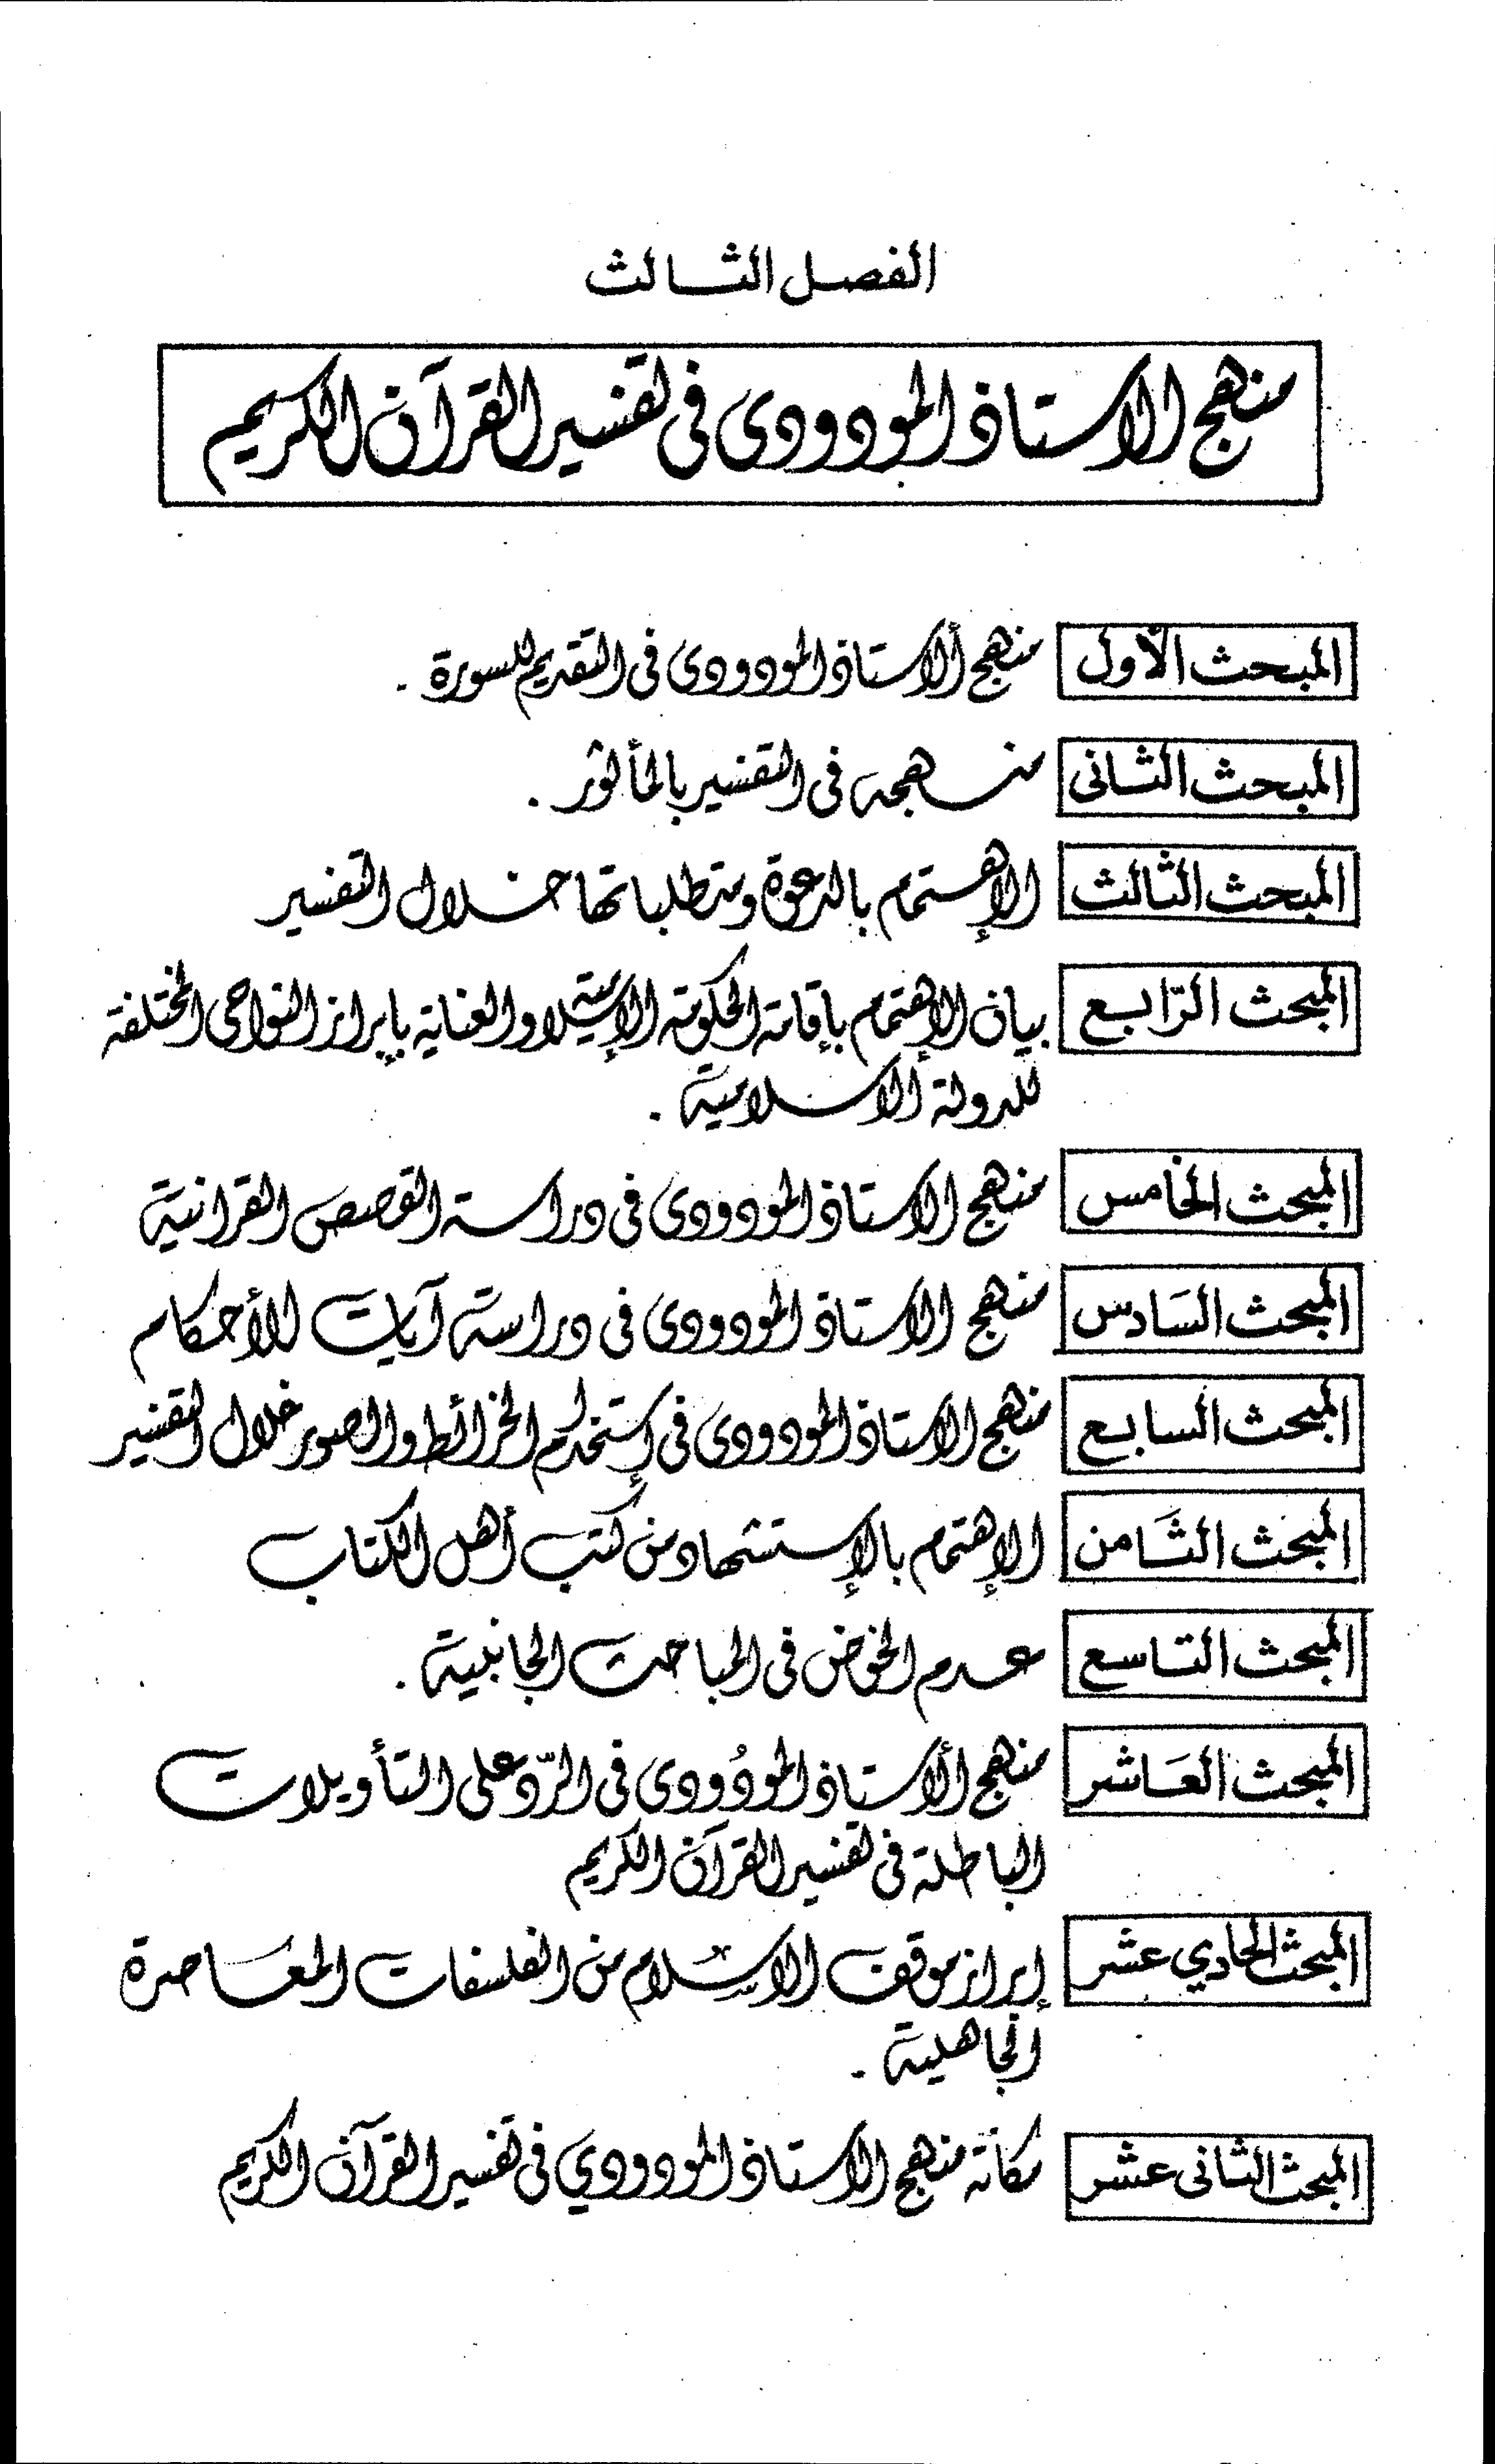 الفصل الثالث
منهج الاستاذ المودودى فى تفسير القرآن الكريم
المبحث الأول منهج الأستاذ المودودى فى التقديم للسورة .
المبحث الثانى منهجه فى التفسير بالمأثور .
المبحث الثالث الإهتمام بالدعوة ومتطلباتها خلال التفسير
المبحث الرّابع بيان الإهتمام بإقامة الحكومة الإسلامية والعناية بإبراز النواحى المختلفة
للدولة الاسلامية .
المبحث الخامس منهج الاستاذ المودودى فى دراسة القصص القرانية
المبحث السَادس منهج الاستاذ المودودى فى دراسة آيات الأحكام
المبحث السابع منهج الاستاذ المودودى فى إستخدام الخرائط والصور خلال التفسير
المبحث الثَامن الإهتمام بالإستشهاد من كتب أهل الكتاب
المبحث التاسع عدم الخوض فى المباحث الجانبية .
المبحث العَاشر منهج الأستاذ المودُودى فى الرّد على التأويلات
الباطلة فى تفسير القرآن الكريم
المبحث الحادي عشر إبراز موقف الاسلام من الفلسفات المعَاصرة
الجاهلية .
المبحث الثانى عشر مكانة منهج الاستاذ المودودي فى تفسير القرآن الكريم